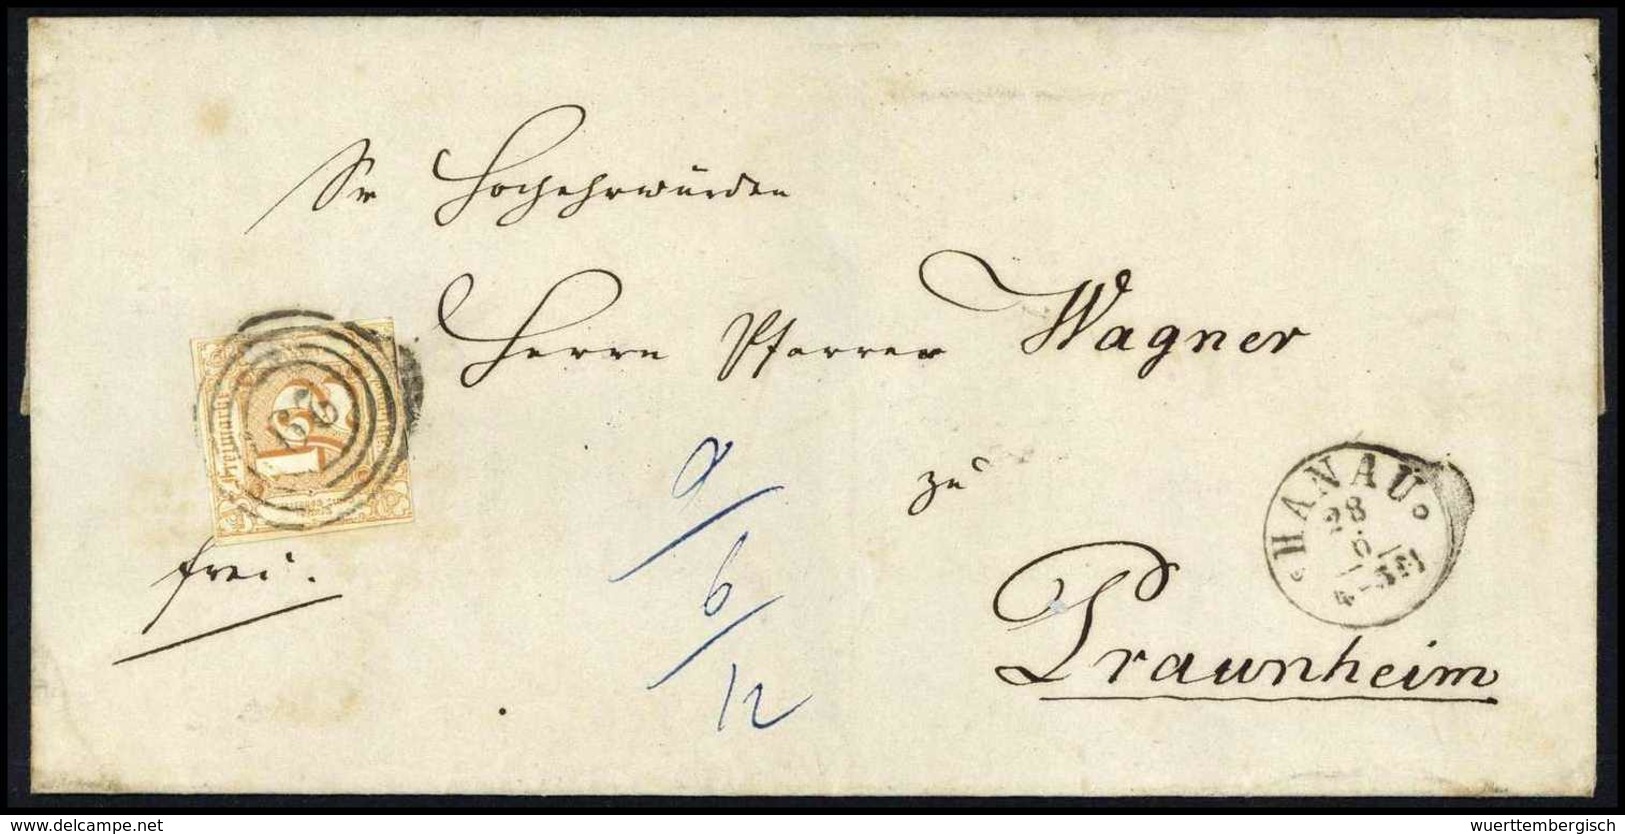 Sr Hochehrwürden
Herrn Pfarrer Wagner
zu
Praunheim
frei.
Freimarke
HANAU
28
6
4-5N
67
9
6
12
www.delcampe.net
wuerttembergisch